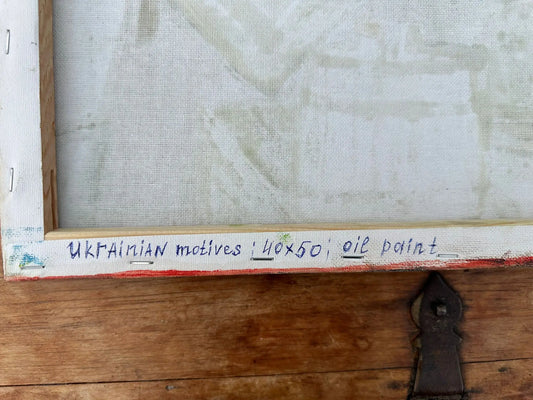 UKrAiniAN motives ; 40x50 ; oil paint